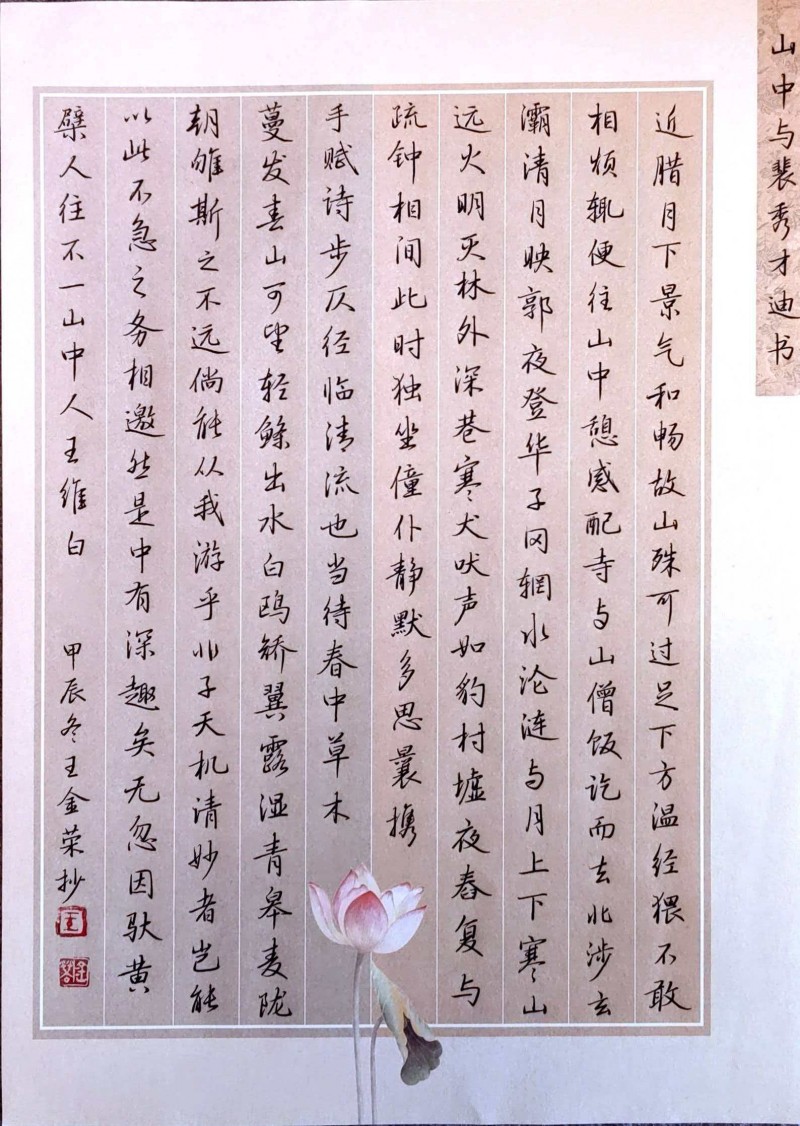 山中与裴秀才迪书
近腊月下景气和畅故山殊可过足下方温经猥不敢
相烦辄便往山中憩感配寺与山僧饭讫而去北涉玄
灞清月映郭夜登华子冈辋水沦涟与月上下寒山
远火明灭林外深巷寒犬吠声如豹村墟夜舂复与
疏钟相间此时独坐僮仆静默多思曩携
手赋诗步仄径临清流也当待春中草木
蔓发春山可望轻鲦出水白鸥矫翼露湿青皋麦陇
朝雊斯之不远倘能从我游乎非子天机清妙者岂能
以此不急之务相邀然是中有深趣矣无忽因驮黄
檗人往不一山中人王维白
甲辰冬王金荣抄
王